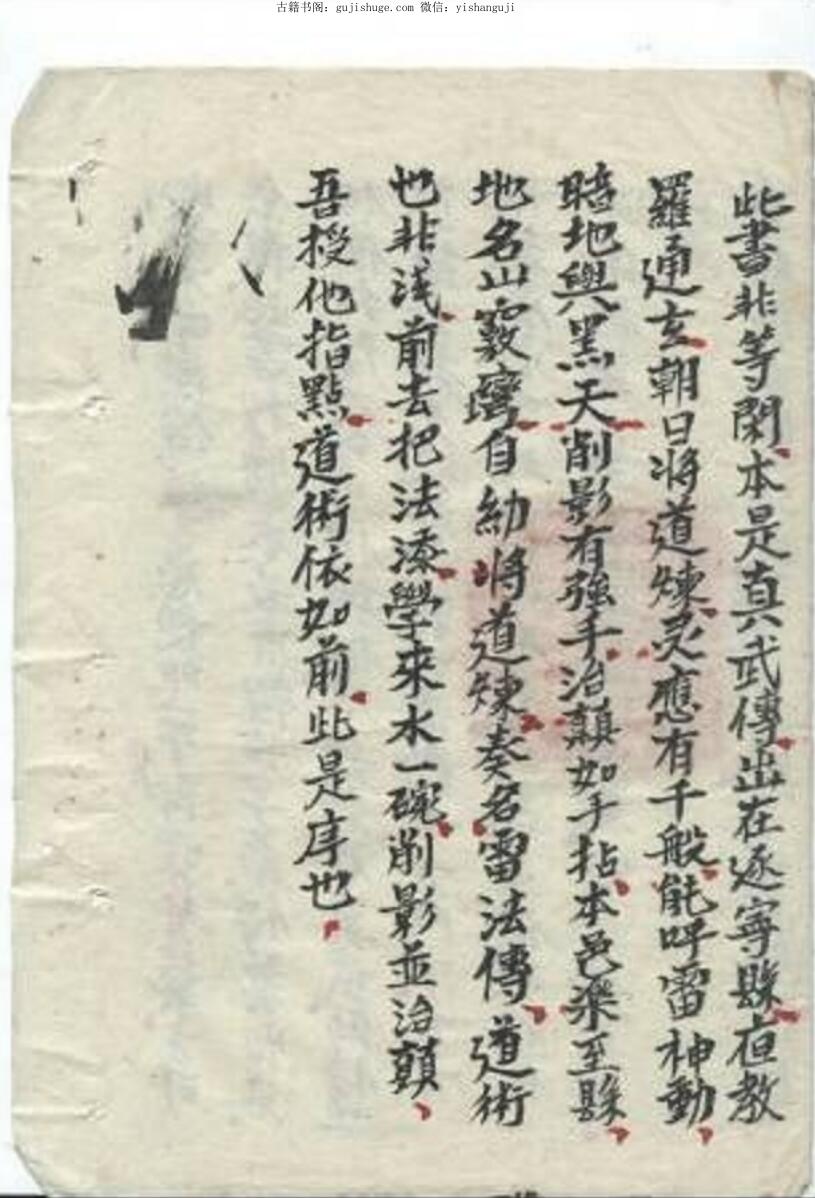 古籍书阁：gujishuge.com 微信：yishanguji
此書非等閑本是真武傳出在逐寧縣夜教
羅通玄朝日將道煉灵應有千般能呼雷神動
暗地與黑天削影有強手治顛如手拈本邑樂至縣
地名山竅自幼將道煉奏名雷法傳道術
也非浅前去把法添學來水一碗削影並治顛
吾授他指點道術依如前此是序也